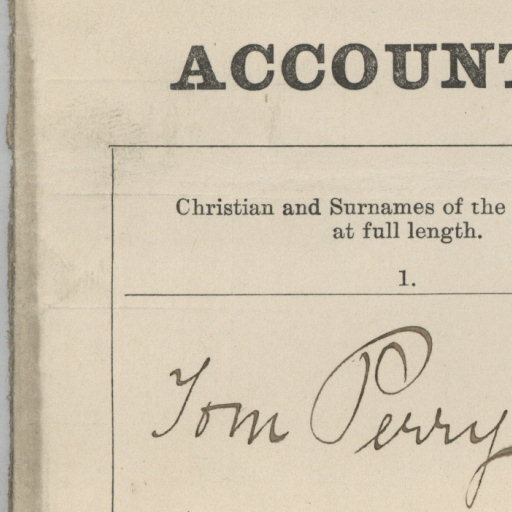 ACCOUNT
Christian and Surnames of the
at full length.
1.
Tom Perry